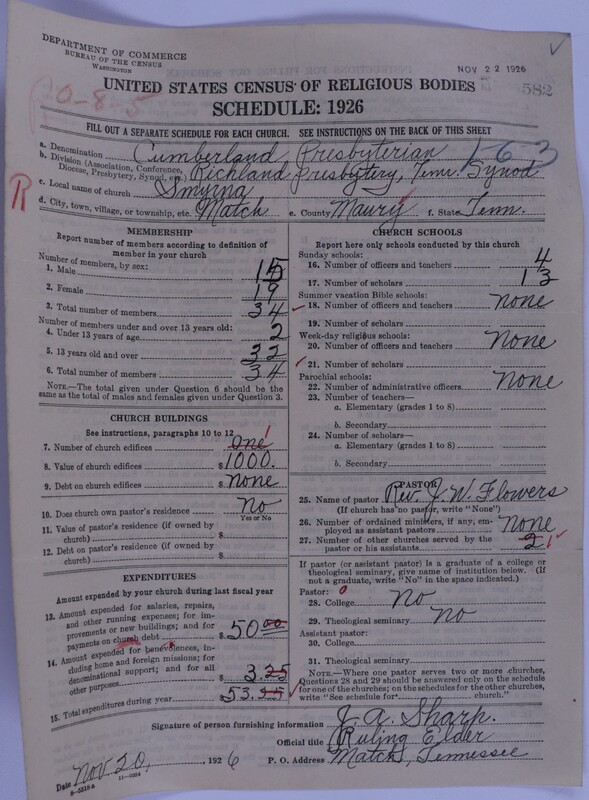 DEPARTMENT OF COMMERCE
BUREAU OF THE CENSUS
WASHINGTON
NOV 22 1926
582
UNITED STATES CENSUS OF RELIGIOUS BODIES
SCHEDULE: 1926
0-8-5
FILL OUT A SEPARATE SCHEDULE FOR EACH CHURCH. SEE INSTRUCTIONS ON THE BACK OF THIS SHEET
a. Denomination Cumberland Presbyterian 1-63
b. Division (Association, Conference, Diocese, Presbytery, Synod, etc.) Richland Presbytery, Tenn. Synod
R
c. Local name of church Smyrna
d. City, town, village, or township, etc. Match e. County Maury f. State Tenn.
MEMBERSHIP
Report number of members according to definition of member in your church
Number of members, by sex:
1. Male 15
2. Female 19
3. Total number of members 34
Number of members under and over 13 years old:
4. Under 13 years of age 2
5. 13 years old and over 32
6. Total number of members 34
NOTE.—The total given under Question 6 should be the
same as the total of males and females given under Question 3.
CHURCH BUILDINGS
See instructions, paragraphs 10 to 12
7. Number of church edifices One 1
8. Value of church edifices $1000.
9. Debt on church edifices $ none
10. Does church own pastor's residence? No
Yes or No
11. Value of pastor's residence (if owned by
church) $
12. Debt on pastor's residence (if owned by
church) $
EXPENDITURES
Amount expended by your church during last fiscal year
13. Amount expended for salaries, repairs,
and other running expenses; for im-
provements or new buildings; and for
payments on church debt $ 50.00
14. Amount expended for benevolences, in-
cluding home and foreign missions; for
denominational support; and for all
other purposes 3.25
15. Total expenditures during year $53.25
CHURCH SCHOOLS
Report here only schools conducted by this church
Sunday schools:
16. Number of officers and teachers 4
17. Number of scholars 13
Summer vacation Bible schools:
18. Number of officers and teachers none
19. Number of scholars
Week-day religious schools:
20. Number of officers and teachers none
21. Number of scholars
Parochial schools:
22. Number of administrative officers none
23. Number of teachers—
a. Elementary (grades 1 to 8)
b. Secondary
24. Number of scholars—
a. Elementary (grades 1 to 8)
b. Secondary
PASTOR
25. Name of pastor Rev. J. W. Flowers
(If church has no pastor, write "None")
26. Number of ordained ministers, if any, em-
ployed as assistant pastors none
27. Number of other churches served by the
pastor or his assistants 2 1
If pastor (or assistant pastor) is a graduate of a college or
theological seminary, give name of institution below. (If
not a graduate, write "No" in the space indicated.)
Pastor: 0
28. College No
29. Theological seminary No
Assistant pastor:
30. College
31. Theological seminary
NOTE.—Where one pastor serves two or more churches,
Questions 28 and 29 should be answered only on the schedule
for one of the churches; on the schedules for the other churches,
write "See schedule for church."
Signature of person furnishing information J. A. Sharp.
Official title Ruling Elder
Date Nov 20, 1926 P. O. Address Match, Tennessee
8-5518 a